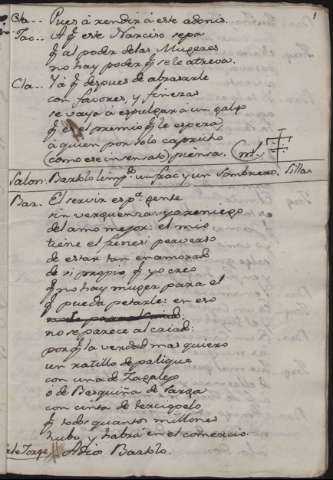 1
Cla.. Pues á rendir á este adonis.
Jac.. A q.e este Narciso sepa
q.e al poder de las Mugeres
no hay poder q.e se le atreva.
Cla.. Y á q.e despues de abrasarle
con favores, y finezas
se vaya á espulgar a un galgo
q.e es el premio q.e le espera,
á quien por solo capricho
(como ese insensato) piensa.
Salon: Bartolo limp.do un frac y un Sombrero. Sillas
Bar.. El servir es p.a gente
sin verguenza: yo reniego
del amo mejor: el mio
tiene el genero perverso
de estar tan enamorado
de si propio, q.e yo creo
q.e no hay muger para el
q.e pueda petarle: en eso
no se parece al criad:
porq.e la verdad mas quiero
un ratillo de palique
con una de Zagalejo
o de Basquiña de sarga
con cinta de terciopelo
q.e todos quantos millones
hubo, y habrá en el comercio.
Jorge Adio Bartolo.